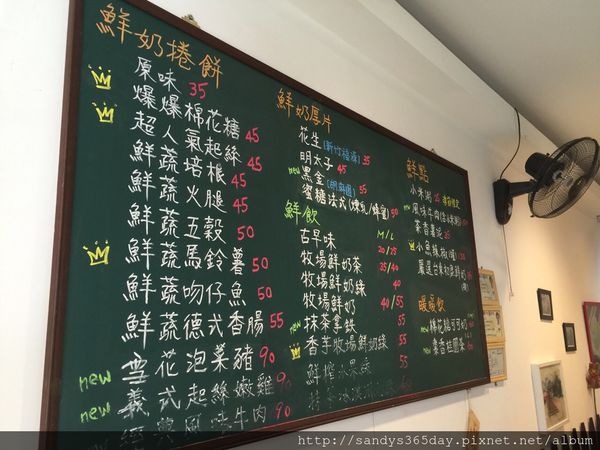 鮮奶捲餅
原味 35
爆爆棉花糖 45
超人氣起絲 45
鮮蔬培根 45
鮮蔬火腿 45
鮮蔬五穀 50
鮮蔬馬鈴薯 50
鮮蔬吻仔魚 50
鮮蔬德式香腸 55
new 雪花泡菜豬 90
new 義式起絲嫩雞 90
風味牛肉 90
鮮奶厚片
花生(新竹福源) 35
明太子 45
new 黑金 55
蜜糖法式(煉乳/蜂蜜) 50
鮮飲
M/L
古早味 20/25
牧場鮮奶茶 35/40
牧場鮮奶綠
牧場鮮奶 40/55
new 抹茶拿鐵 55
香芋牧場鮮奶綠 55
鮮榨水果
鮮點
小米粥
茶香薰泥
暖暖飲
new 棉花糖可可奶
new 棗香桂圓茶
http://sandys365day.pixnet.net/album